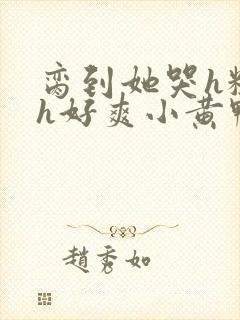 脔到她哭h粗
h好爽小黄鸭
趙秀如